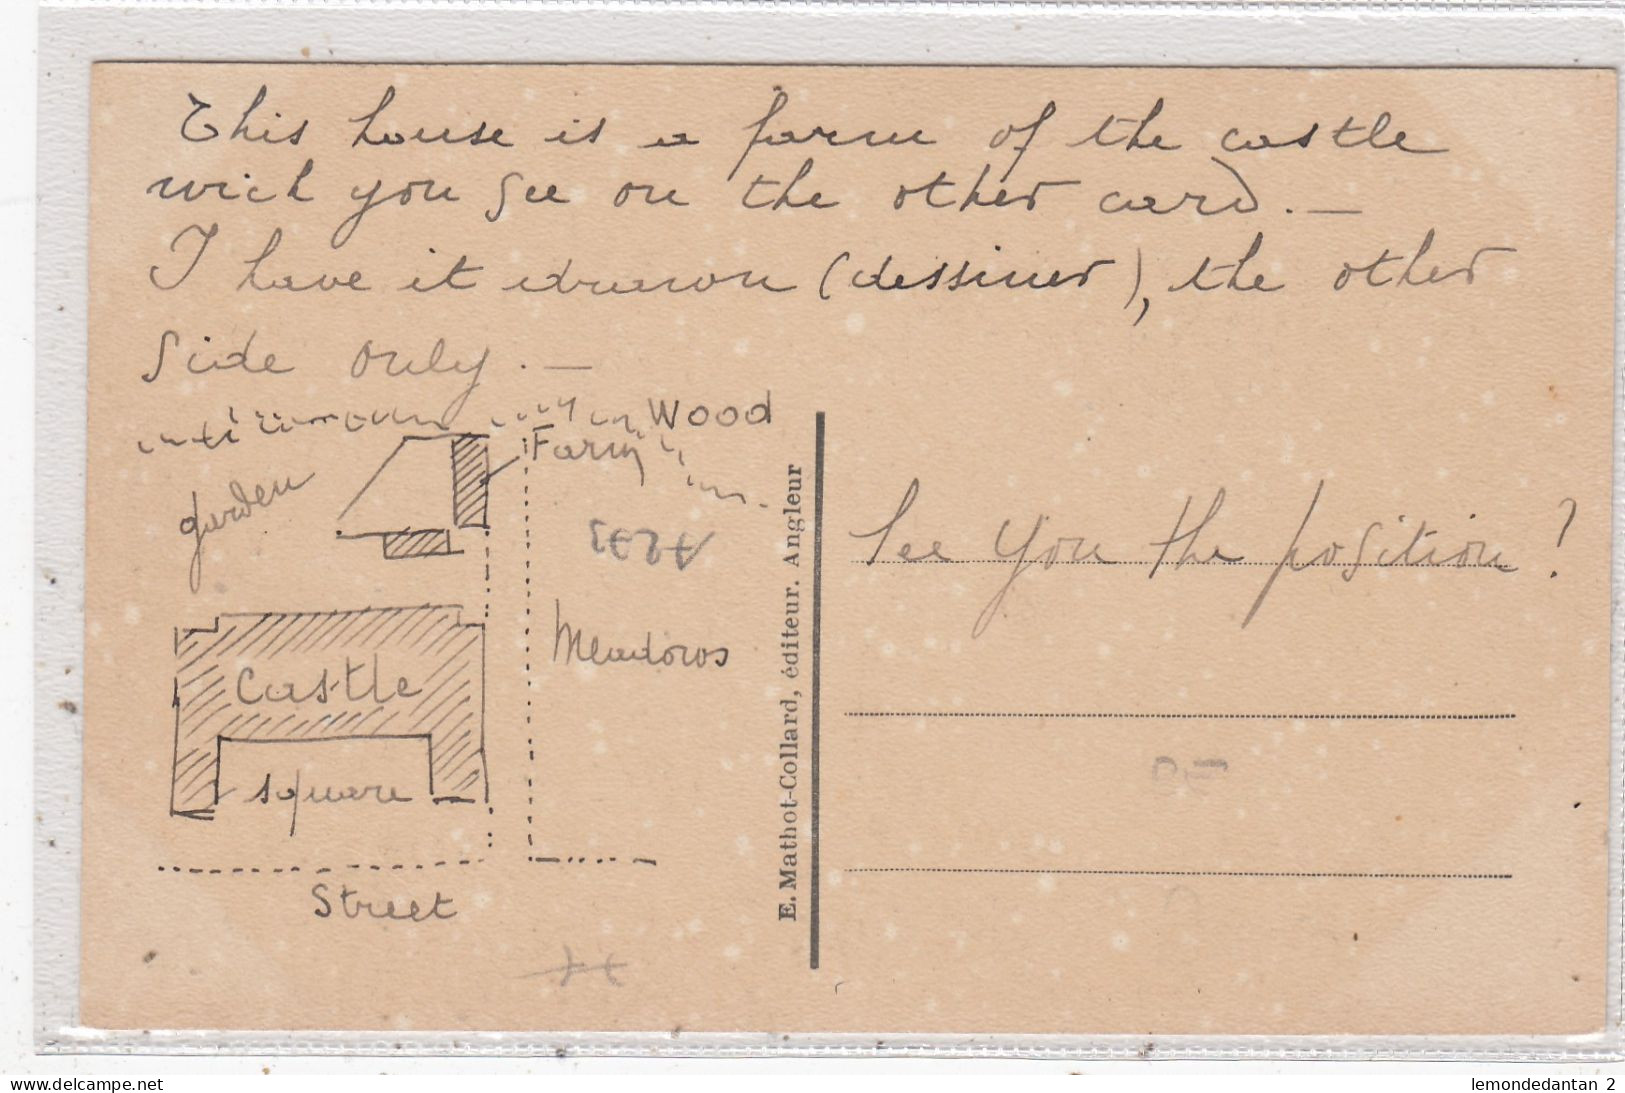 This house is a farm of the castle
wich you see on the other card. —
I have it drawn (dessiner), the other
side only. —
Wood
Farm
garden
Meadows
Castle
square
Street
E. Mathot-Collard, éditeur. Angleur
See you the position ?
delcampe.net
lemondedantan 2